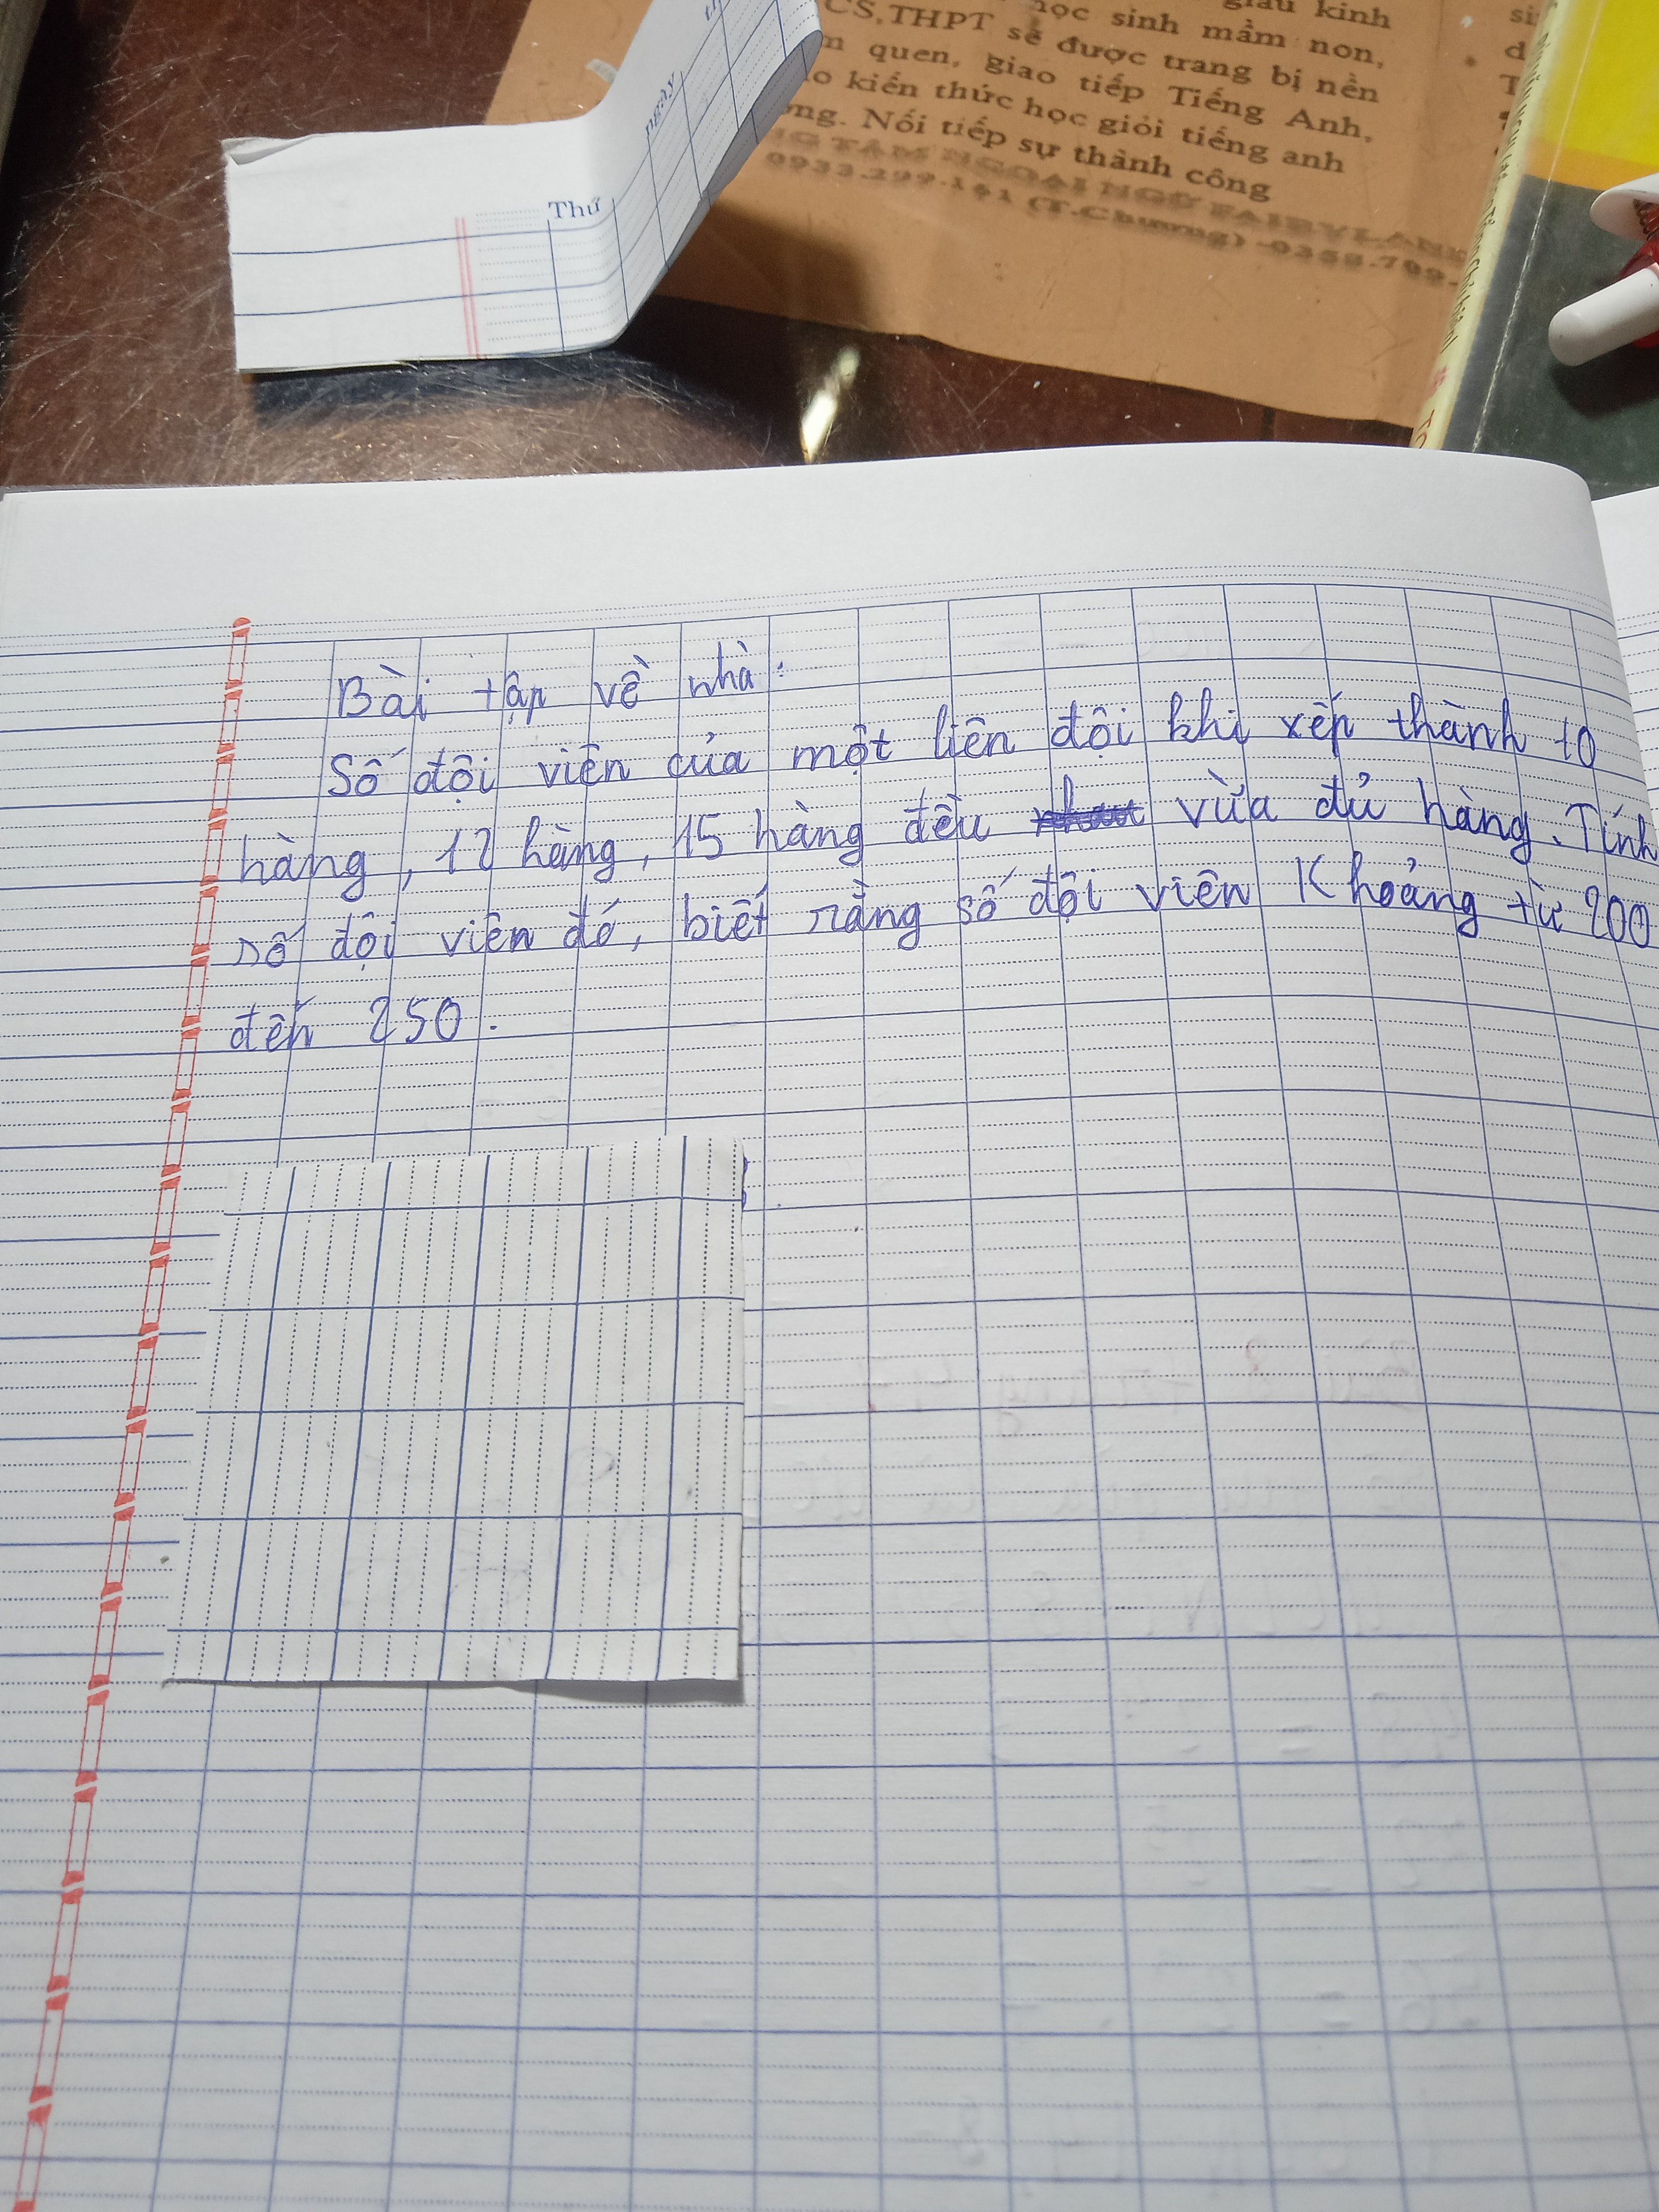 giàu kinh
CS,THPT sẽ được trang bị nền
học sinh mầm non,
quen, giao tiếp Tiếng Anh,
kiến thức học giỏi tiếng anh
Nối tiếp sự thành công
0933.299.141 (T.Chương)
Thứ
ngày
Bài tập về nhà:
Số đội viên của một liên đội khi xếp thành 10
hàng, 12 hàng, 15 hàng đều vừa đủ hàng. Tính
số đội viên đó, biết rằng số đội viên Khoảng từ 200
đến 250.